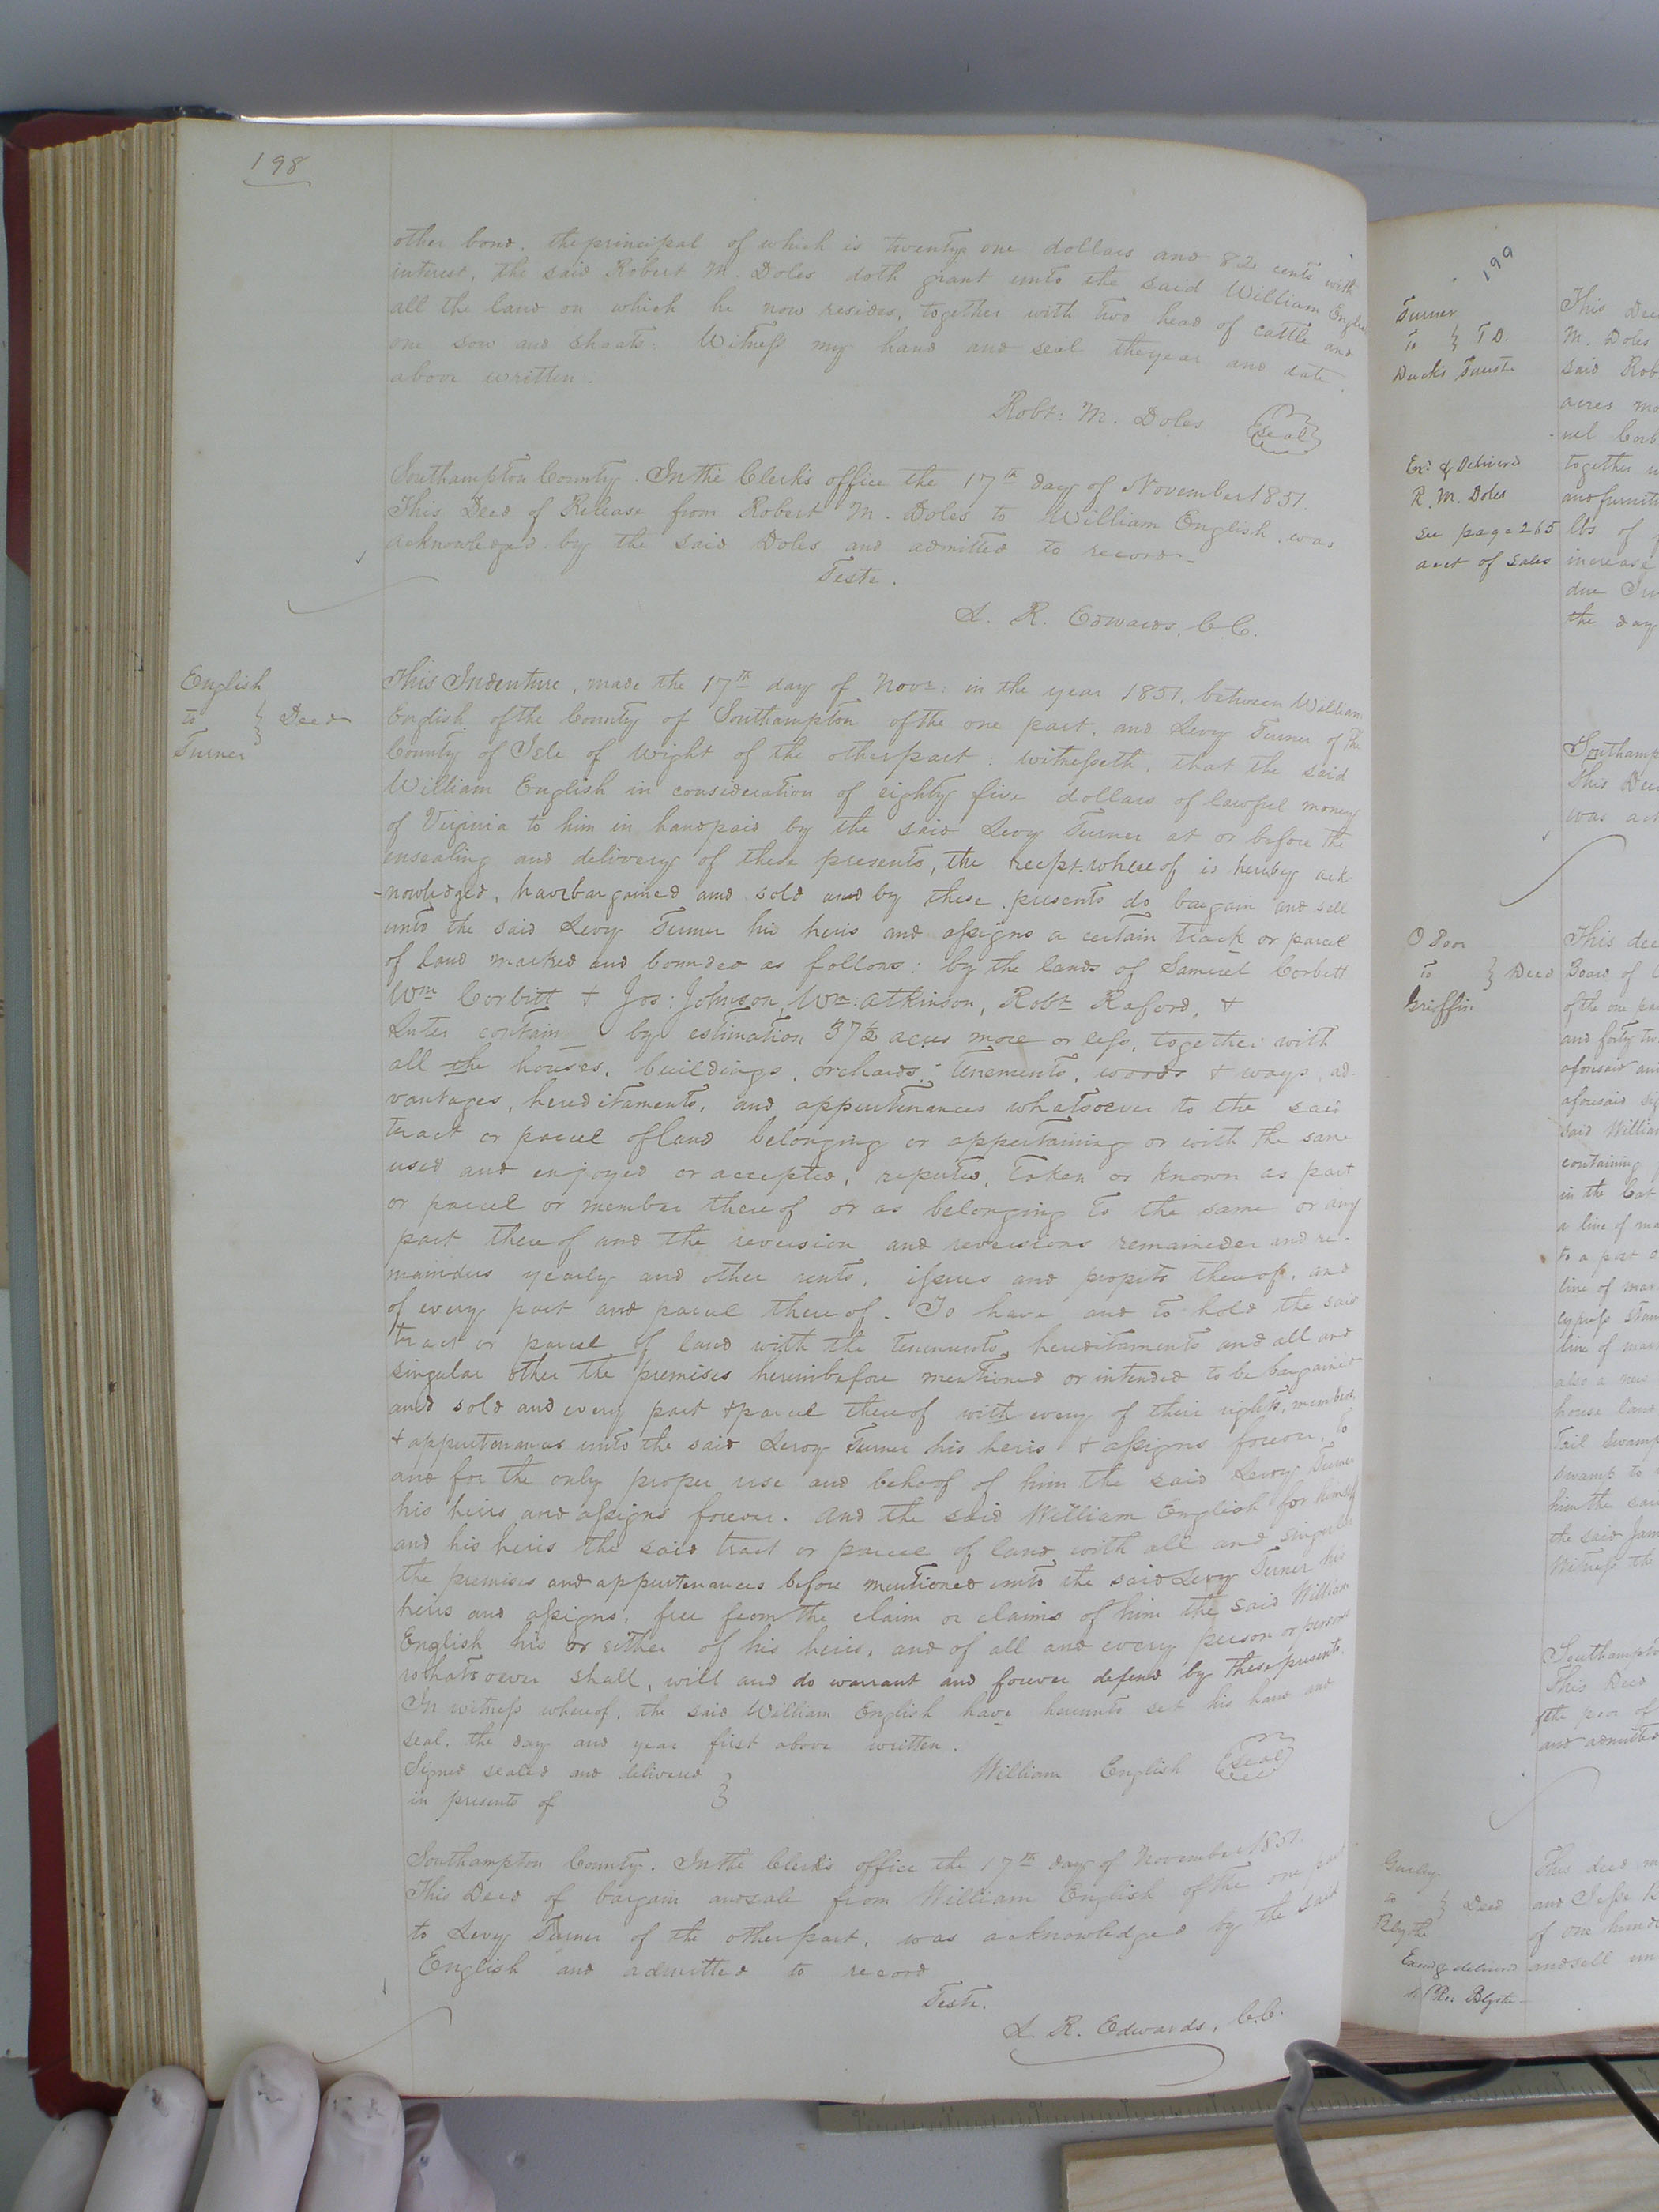 198
other bond. the principal of which is twenty one dollars and 82 cents with
interest, the said Robert M. Doles doth grant unto the said William English
all the land on which he now resides, together with two head of cattle and
one sow and shoats. Witness my hand and seal the year and date
above written.
Robt: M. Doles (Seal)
Southampton County. In the Clerk's office the 17th day of November 1851.
This Deed of Release from Robert M. Doles to William English, was
acknowledged by the said Doles and admitted to record
Teste.
L. R. Edwards, C.C.
English
to } Deed
Turner
This Indenture, made the 17th day of Novr: in the year 1851, between William
English of the County of Southampton of the one part, and Levy Turner of the
County of Isle of Wight of the other part: witnesseth, that the said
William English in consideration of eighty five dollars of lawful money
of Virginia to him in hand paid by the said Levy Turner at or before the
ensealing and delivery of these presents, the recpt. whereof is hereby ack-
-nowledged, have bargained and sold and by these presents do bargain and sell
unto the said Levy Turner his heirs and assigns a certain track or parcel
of land marked and bounded as follows: by the lands of Samuel Corbitt
Wm Corbitt + Jos: Johnson, Wm: Atkinson, Robt Raford, +
contain by estimation 37½ acres more or less, together with
all the houses, buildings, orchards, tenements, woods + ways, ad-
vantages, hereditaments, and appurtenances whatsoever to the said
tract or parcel of land belonging or appertaining or with the same
used and enjoyed or accepted, reputed, taken or known as part
or parcel or member thereof or as belonging to the same or any
part thereof and the reversion and reversions remaineder and re-
mainders yearly and other rents, issues and propits thereof, and
of every part and parcel thereof. To have and to hold the said
tract or parcel of land with the tenements, hereditaments and all and
singular other the premises hereinbefore mentioned or intended to be bargained
and sold and every part + parcel thereof with every of their rights, members,
+ appurtenances unto the said Levoy Turner his heirs + assigns forever. To
and for the only proper use and behoof of him the said Levoy Turner
his heirs and assigns forever. And the said William English for himself
and his heirs the said tract or parcel of land with all and singular
the premises and appurtenances before mentioned unto the said Levy Turner his
heirs and assigns, free from the claim or claims of him the said William
English his or either of his heirs, and of all and every person or persons
whatsoever shall, will and do warrant and forever defend by these presents.
In witness whereof, the said William English have hereunto set his hand and
seal, the day and year first above written.
Signed sealed and delivered } William English (Seal)
in presents of
Southampton County. In the Clerk's office the 17th day of November 1851.
This Deed of bargain and sale from William English of the one part
to Levy Turner of the other part, was acknowledged by the said
English and admitted to record
Teste.
L. R. Edwards, C.C.
199
Turner
to } T D.
Duck's Truste
Exd & Delivered
R. M. Doles
see page 265
acct of sales
This Dee
M. Doles
said Rob
acres mo
together
and furnit
lbs of
increase
the day
Southamp
This Dee
was ac
to } Deed
Griffin
This dee
Board of
of the one pa
and forty tw
aforesaid an
said William
containing
in the
a line of ma
to a
line of mar
cypress stum
line of mar
also a new
house land
Tail Swamp
swamp to
him the said
the said Jam
Witness the
Southampto
This Deed
and admitted
Gurley
to } Deed
Blythe
This deed m
and Jesse B
of one hund
and sell un